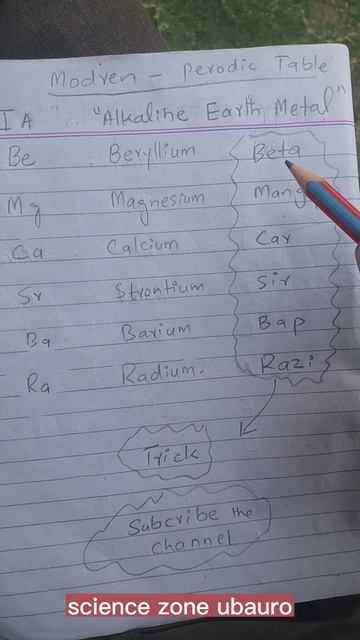 Modren - Perodic Table
I A "Alkaline Earth Metal"
Be Beryllium Beta
Mg Magnesium Mang
Ca Calcium Car
Sr Strontium Sir
Ba Barium Bap
Ra Radium. Razi
Trick
Subcribe the
channel
science zone ubauro